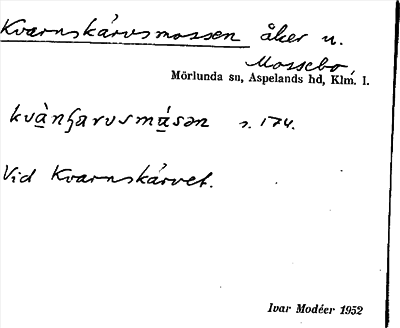 Kvarnskårvsmossen åker u.
Mossebo,
Mörlunda sn, Aspelands hd, Klm. l.
s. 174.
Vid Kvarnskårvet.
Ivar Modéer 1952